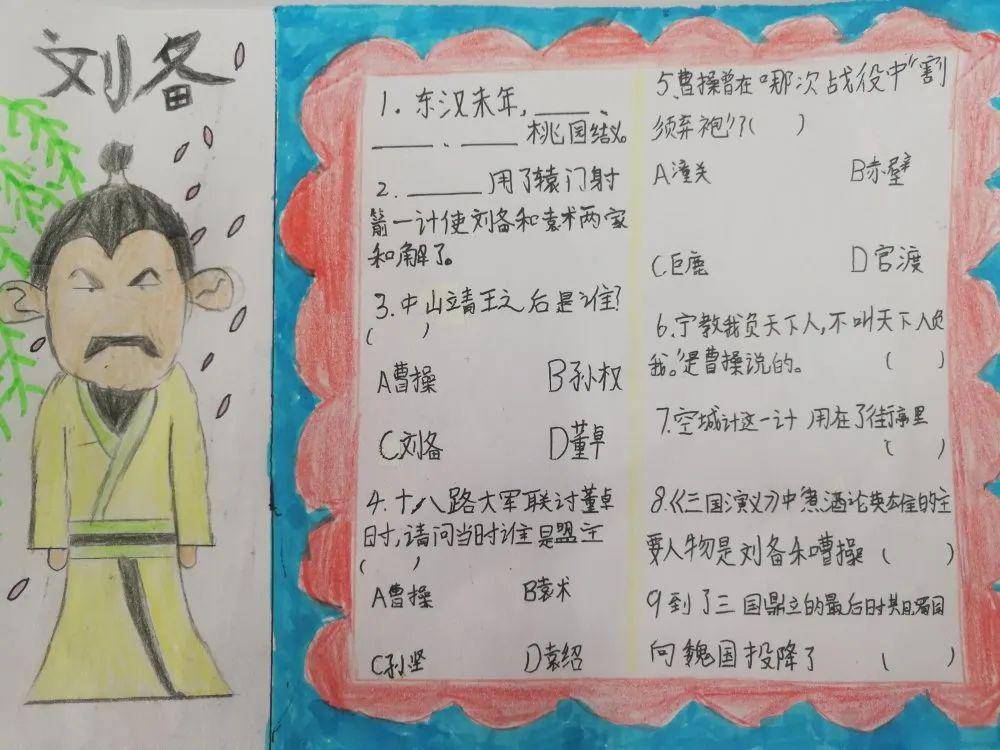 刘备
1. 东汉末年,____、
____、____ 桃园结义。
2. ______ 用了辕门射
箭一计使刘备和袁术两家
和解了。
3. 中山靖王之后是谁?
( )
A曹操 B孙权
C刘备 D董卓
4. 十八路大军联讨董卓
时,请问当时谁是盟主
( )
A曹操 B袁术
C孙坚 D袁绍
5、曹操曾在"哪次战役中"割
须弃袍"?( )
A潼关 B赤壁
C巨鹿 D官渡
6. 宁教我负天下人,不叫天下人负
我。"是曹操说的。 ( )
7. 空城计这一计 用在了街亭里
( )
8.《三国演义》中煮酒论英雄的主
要人物是刘备和曹操 ( )
9 到了三国鼎立的最后时期,蜀国
向魏国投降了 ( )